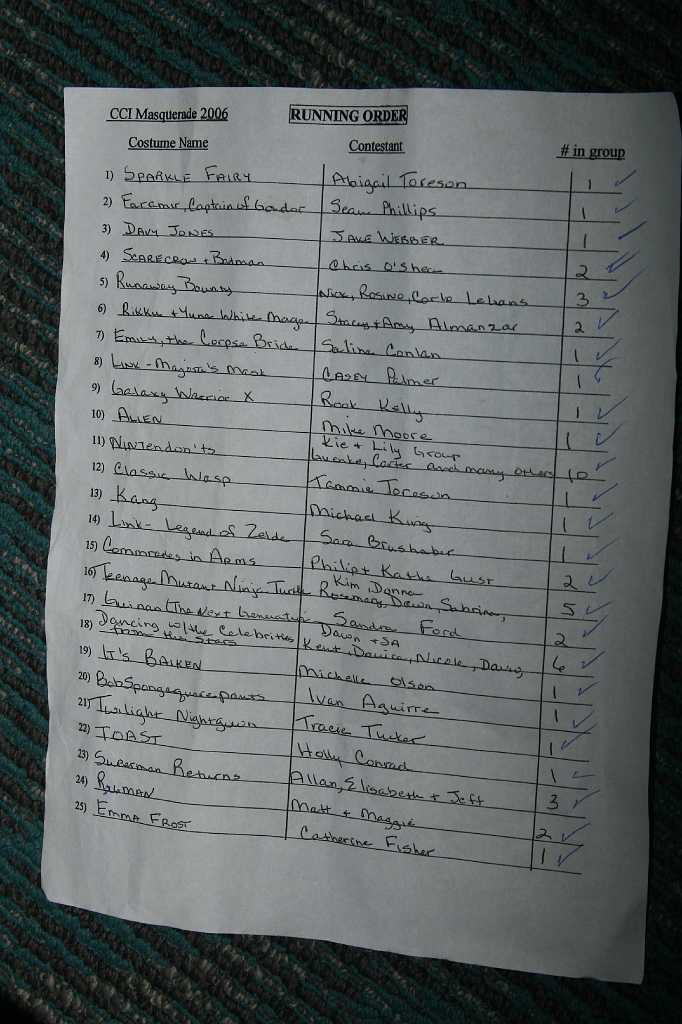 CCI Masquerade 2006 RUNNING ORDER
Costume Name Contestant # in group
1) SPARKLE FAIRY Abigail Toreson 1
2) Faramir, Captain of Gondor Sean Phillips 1
3) DAVY JONES JAKE WEBBER 1
4) SCARECROW + Batman Chris O'Shea 2
5) Runaway Bounty Nick, Rosine, Carlo Lehans 3
6) Rikku + Yuna White Mage Stacey + Amy Almanzar 2
7) Emily, the Corpse Bride Salina Conlan 1
8) Link - Majora's Mask CASEY Palmer 1
9) Galaxy Warrior X Rook Kelly 1
10) ALIEN Mike Moore 1
Kie + Lily Group
11) NINTendon'ts Carter and many others 10
12) Classic Wasp Tammie Toreson 1
13) Kang Michael King 1
14) Link - Legend of Zelda Sara Brushaber 1
15) Commrades in Arms Philip + Kathe Gust 2
Kim, Donna
16) Teenage Mutant Ninja Turtle Rosemary, Dawn, Sabrina, 5
17) Guinan (The Next Generation Sandra Ford 2
Dawn + SA
18) Dancing w/the Celebrities Kent, Nicole, 6
from the Stars
19) IT'S BALKEN Michelle Olson 1
20) BobSpongesquarepants Ivan Aguirre 1
21) Twilight Nightgown Tracie Tucker 1
22) TOAST Holly Conrad 1
23) Superman Returns Allan, Elisabeth + Jeff 3
24) Matt + Maggie 2
25) EMMA FROST Catherine Fisher 1